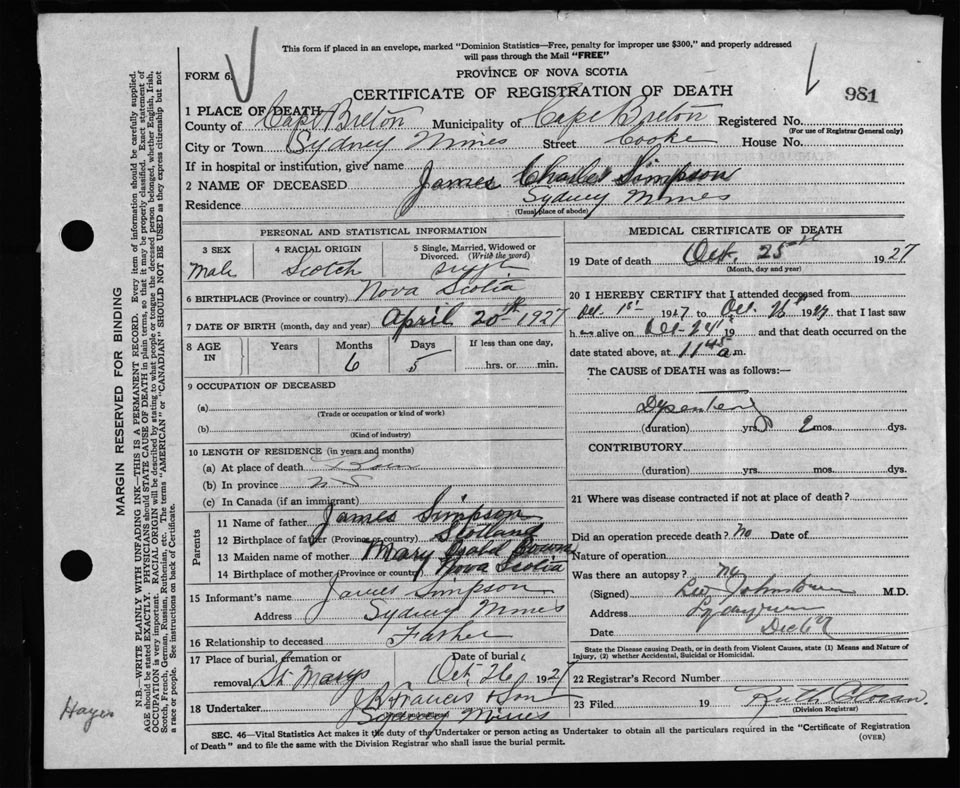 This form if placed in an envelope, marked "Dominion Statistics—Free, penalty for improper use $300," and properly addressed
will pass through the Mail "FREE"
FORM 6.
PROVINCE OF NOVA SCOTIA
CERTIFICATE OF REGISTRATION OF DEATH
981
1 PLACE OF DEATH
County of Cape Breton Municipality of Cape Breton Registered No.
(For use of Registrar General only)
City or Town Sydney Mines Street Cooke House No.
If in hospital or institution, give name
2 NAME OF DECEASED James Charles Simpson
Residence Sydney Mines
(Usual place of abode)
PERSONAL AND STATISTICAL INFORMATION
3 SEX 4 RACIAL ORIGIN 5 Single, Married, Widowed or Divorced. (Write the word)
Male Scotch single
6 BIRTHPLACE (Province or country) Nova Scotia
7 DATE OF BIRTH (month, day and year) April 20th 1927
8 AGE IN Years Months Days If less than one day,
6 5 hrs. or min.
9 OCCUPATION OF DECEASED
(a)
(Trade or occupation or kind of work)
(b)
(Kind of industry)
10 LENGTH OF RESIDENCE (in years and months)
(a) At place of death Born
(b) In province N.S.
(c) In Canada (if an immigrant)
Parents
11 Name of father James Simpson
12 Birthplace of father (Province or country) Scotland
13 Maiden name of mother Mary
14 Birthplace of mother (Province or country) Nova Scotia
15 Informant's name James Simpson
Address Sydney Mines
16 Relationship to deceased Father
17 Place of burial, cremation or removal St. Marys Date of burial Oct 26 1927
18 Undertaker Francis & Son
Sydney Mines
MEDICAL CERTIFICATE OF DEATH
19 Date of death Oct. 25th 1927
(Month, day and year)
20 I HEREBY CERTIFY that I attended deceased from
Oct. 1st 19 7 to Oct. 19 that I last saw
h alive on Oct-24 19 and that death occurred on
date stated above, at 11 45 a.m.
The CAUSE of DEATH was as follows:—
Dysentery
(duration) yrs. 2 mos. dys.
CONTRIBUTORY
(duration) yrs. mos. dys.
21 Where was disease contracted if not at place of death?
Did an operation precede death? No Date of
Nature of operation
Was there an autopsy? No
(Signed) Johnstone M.D.
Address
Date Dec 6
State the Disease causing Death, or in death from Violent Causes, state (1) Means and Nature of
Injury, (2) whether Accidental, Suicidal or Homicidal.
22 Registrar's Record Number
23 Filed 19 Ruth
(Division Registrar)
SEC. 46—Vital Statistics Act makes it the duty of the Undertaker or person acting as Undertaker to obtain all the particulars required in the "Certificate of Registration
of Death" and to file the same with the Division Registrar who shall issue the burial permit.
(OVER)
MARGIN RESERVED FOR BINDING
N.B.—WRITE PLAINLY WITH UNFADING INK—THIS IS A PERMANENT RECORD. Every item of information should be carefully supplied.
AGE should be stated EXACTLY. PHYSICIANS should STATE CAUSE OF DEATH in plain terms, so that it may be properly classified. Exact statement of
OCCUPATION is very important. RACIAL ORIGIN will be described by stating to what people or tongue the deceased person belonged, whether English, Irish,
Scotch, French, German, Russian, Ruthenian, etc. The terms "AMERICAN" or "CANADIAN" SHOULD NOT BE USED as they express citizenship but not
a race or people. See instructions on back of Certificate.
Hayes